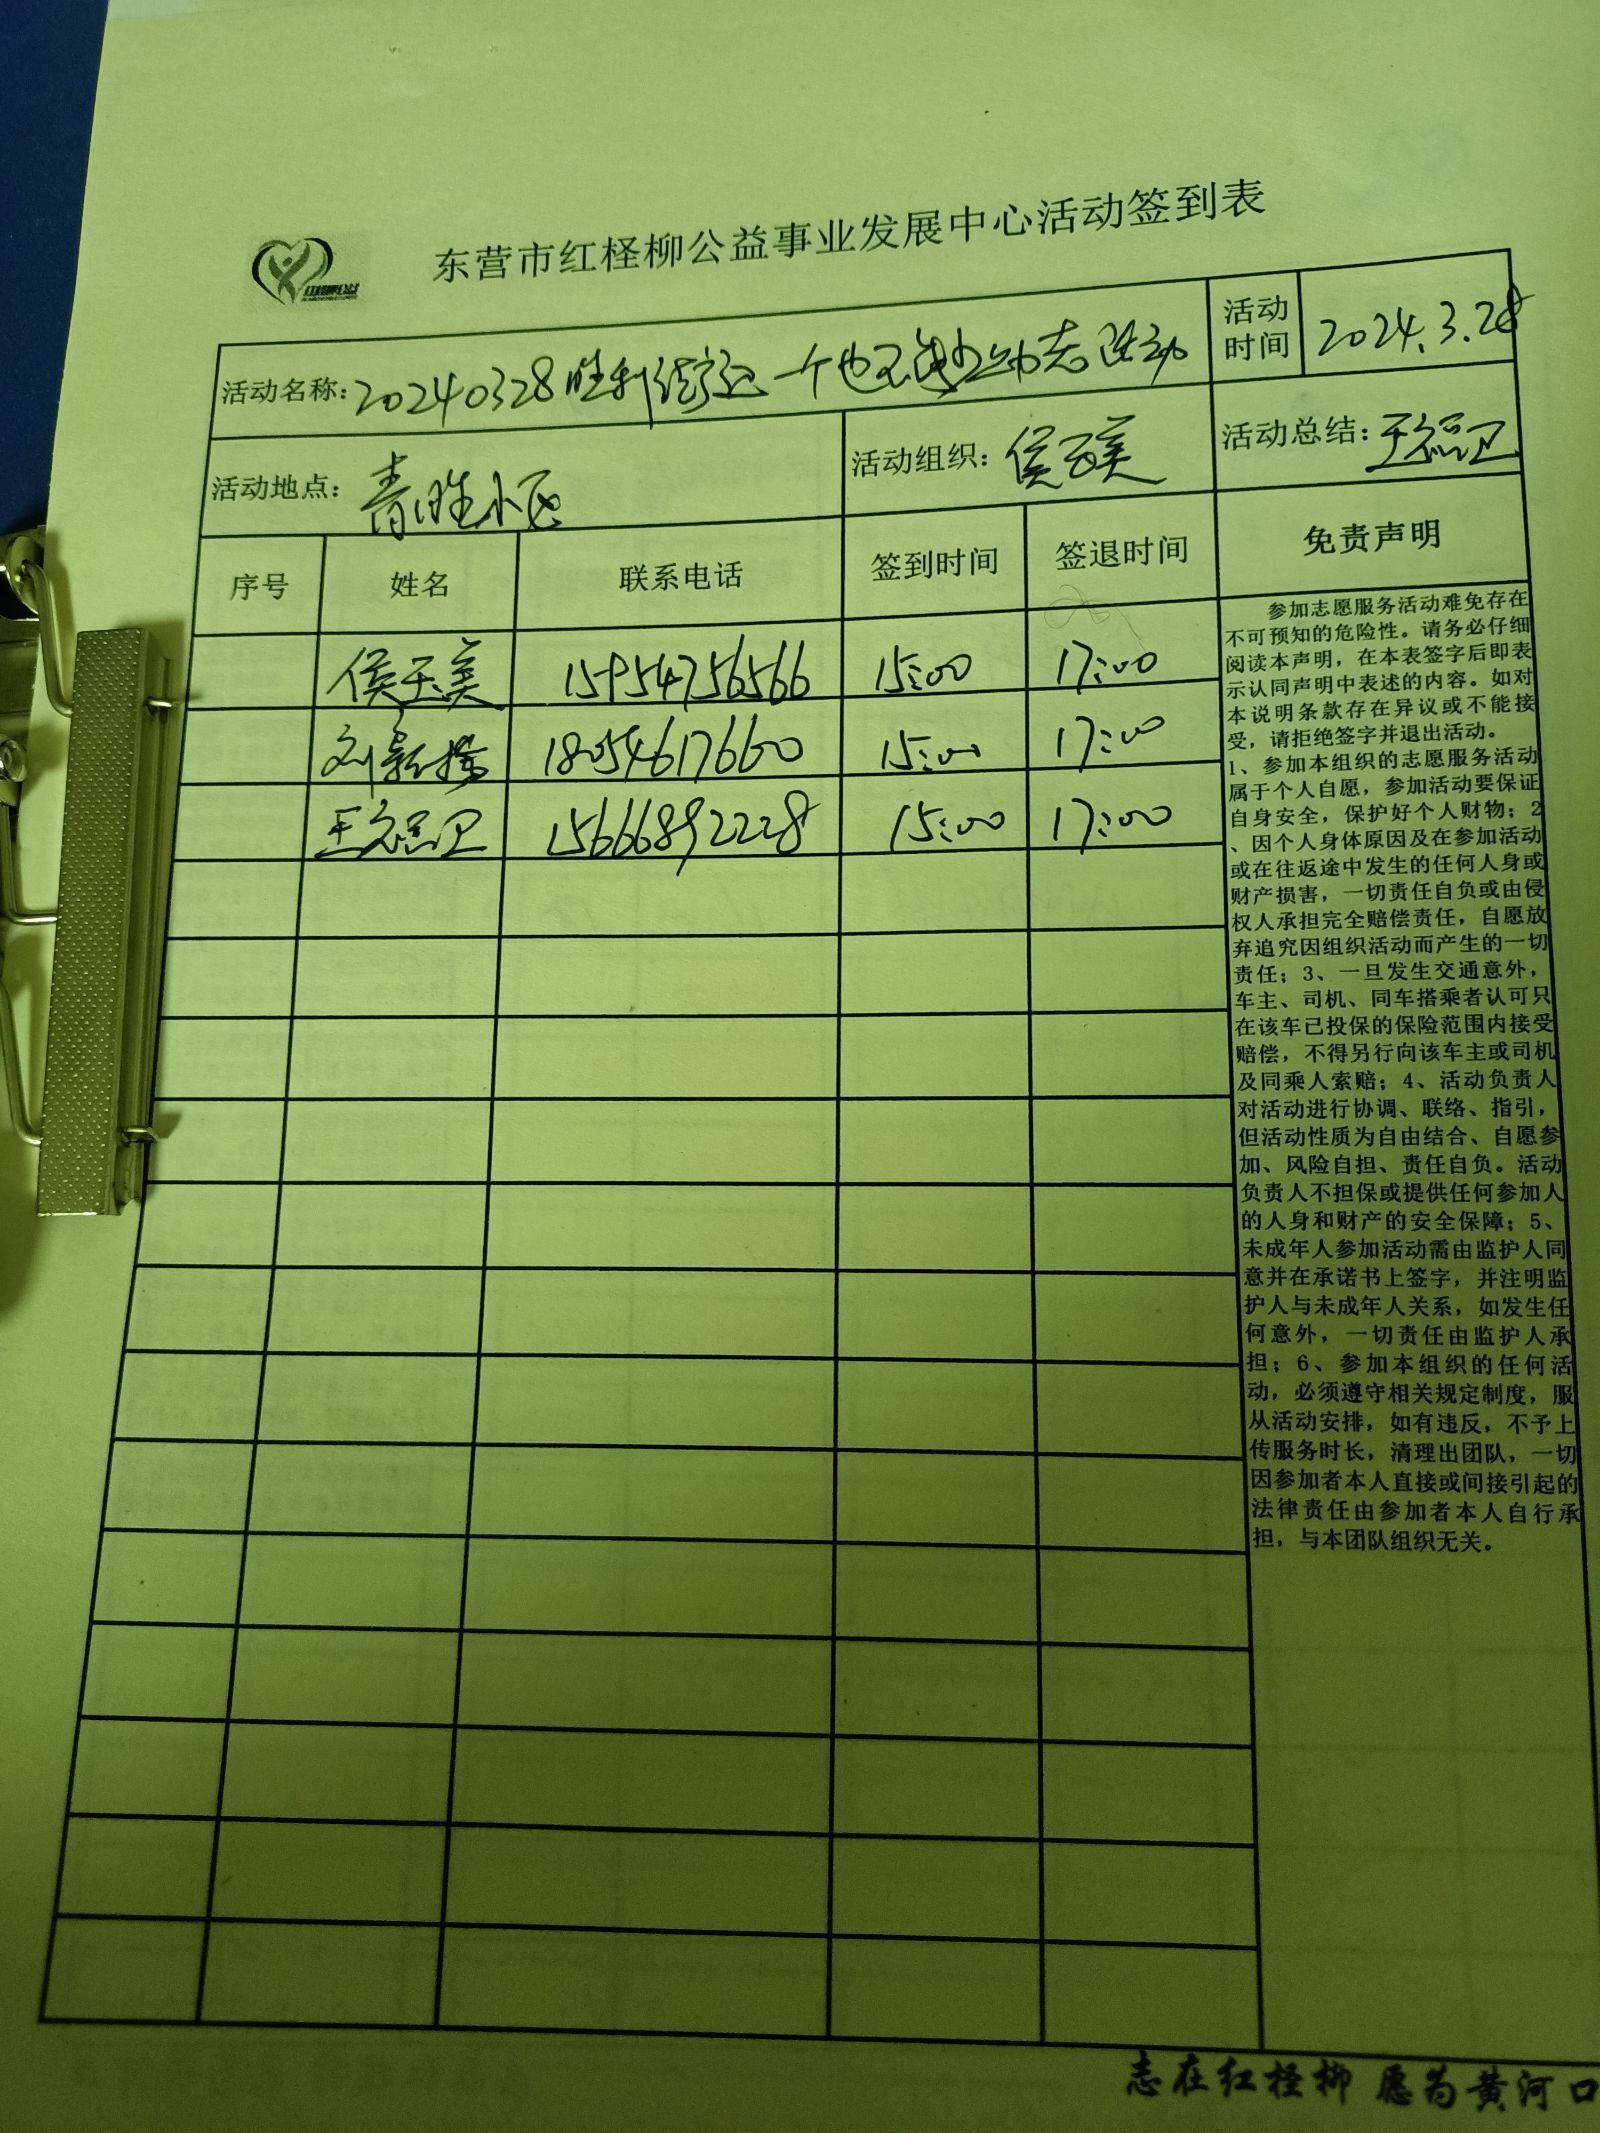 东营市红柽柳公益事业发展中心活动签到表
活动名称：20240328胜利街道一个也不能少 活动
活动时间 2024.3.28
活动地点：青胜小区
活动组织：侯玉美
活动总结：王
序号 姓名 联系电话 签到时间 签退时间 免责声明
侯玉美 15954756566 15:00 17:00
刘 18054617660 15:00 17:00
王 15666892228 15:00 17:00
参加志愿服务活动难免存在
不可预知的危险性。请务必仔细
阅读本声明，在本表签字后即表
示认同声明中表述的内容。如对
本说明条款存在异议或不能接
受，请拒绝签字并退出活动。
1、参加本组织的志愿服务活动
属于个人自愿，参加活动要保证
自身安全，保护好个人财物；2
、因个人身体原因及在参加活动
或在往返途中发生的任何人身或
财产损害，一切责任自负或由侵
权人承担完全赔偿责任，自愿放
弃追究因组织活动而产生的一切
责任；3、一旦发生交通意外，
车主、司机、同车搭乘者认可只
在该车已投保的保险范围内接受
赔偿，不得另行向该车主或司机
及同乘人索赔；4、活动负责人
对活动进行协调、联络、指引，
但活动性质为自由结合、自愿参
加、风险自担、责任自负。活动
负责人不担保或提供任何参加人
的人身和财产的安全保障；5、
未成年人参加活动需由监护人同
意并在承诺书上签字，并注明监
护人与未成年人关系，如发生任
何意外，一切责任由监护人承
担；6、参加本组织的任何活
动，必须遵守相关规定制度，服
从活动安排，如有违反，不予上
传服务时长，清理出团队，一切
因参加者本人直接或间接引起的
法律责任由参加者本人自行承
担，与本团队组织无关。
志在红柽柳 愿为黄河口